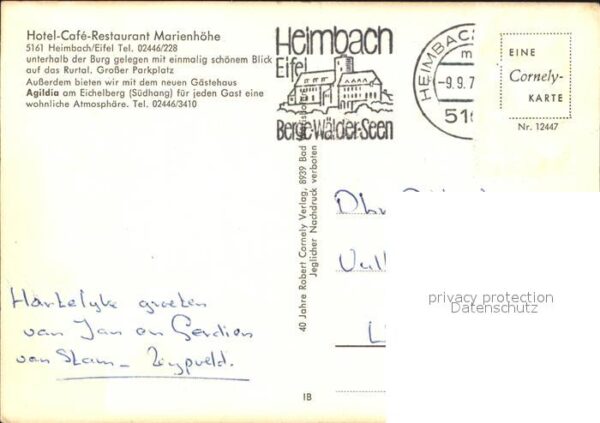 Hotel-Café-Restaurant Marienhöhe
5161 Heimbach/Eifel Tel. 02446/228
unterhalb der Burg gelegen mit einmalig schönem Blick
auf das Rurtal. Großer Parkplatz
Außerdem bieten wir mit dem neuen Gästehaus
Agildia am Eichelberg (Südhang) für jeden Gast eine
wohnliche Atmosphäre. Tel. 02446/3410
Heimbach
Eifel
Berge-Wälder-Seen
HEIMBACH
m
-9.9.7
516
EINE
Cornely-
KARTE
Nr. 12447
40 Jahre Robert Cornely Verlag, 8939 Bad
Jeglicher Nachdruck verboten
privacy protection
Datenschutz
Hartelyke groeten
van Jan en
van Stam
IB